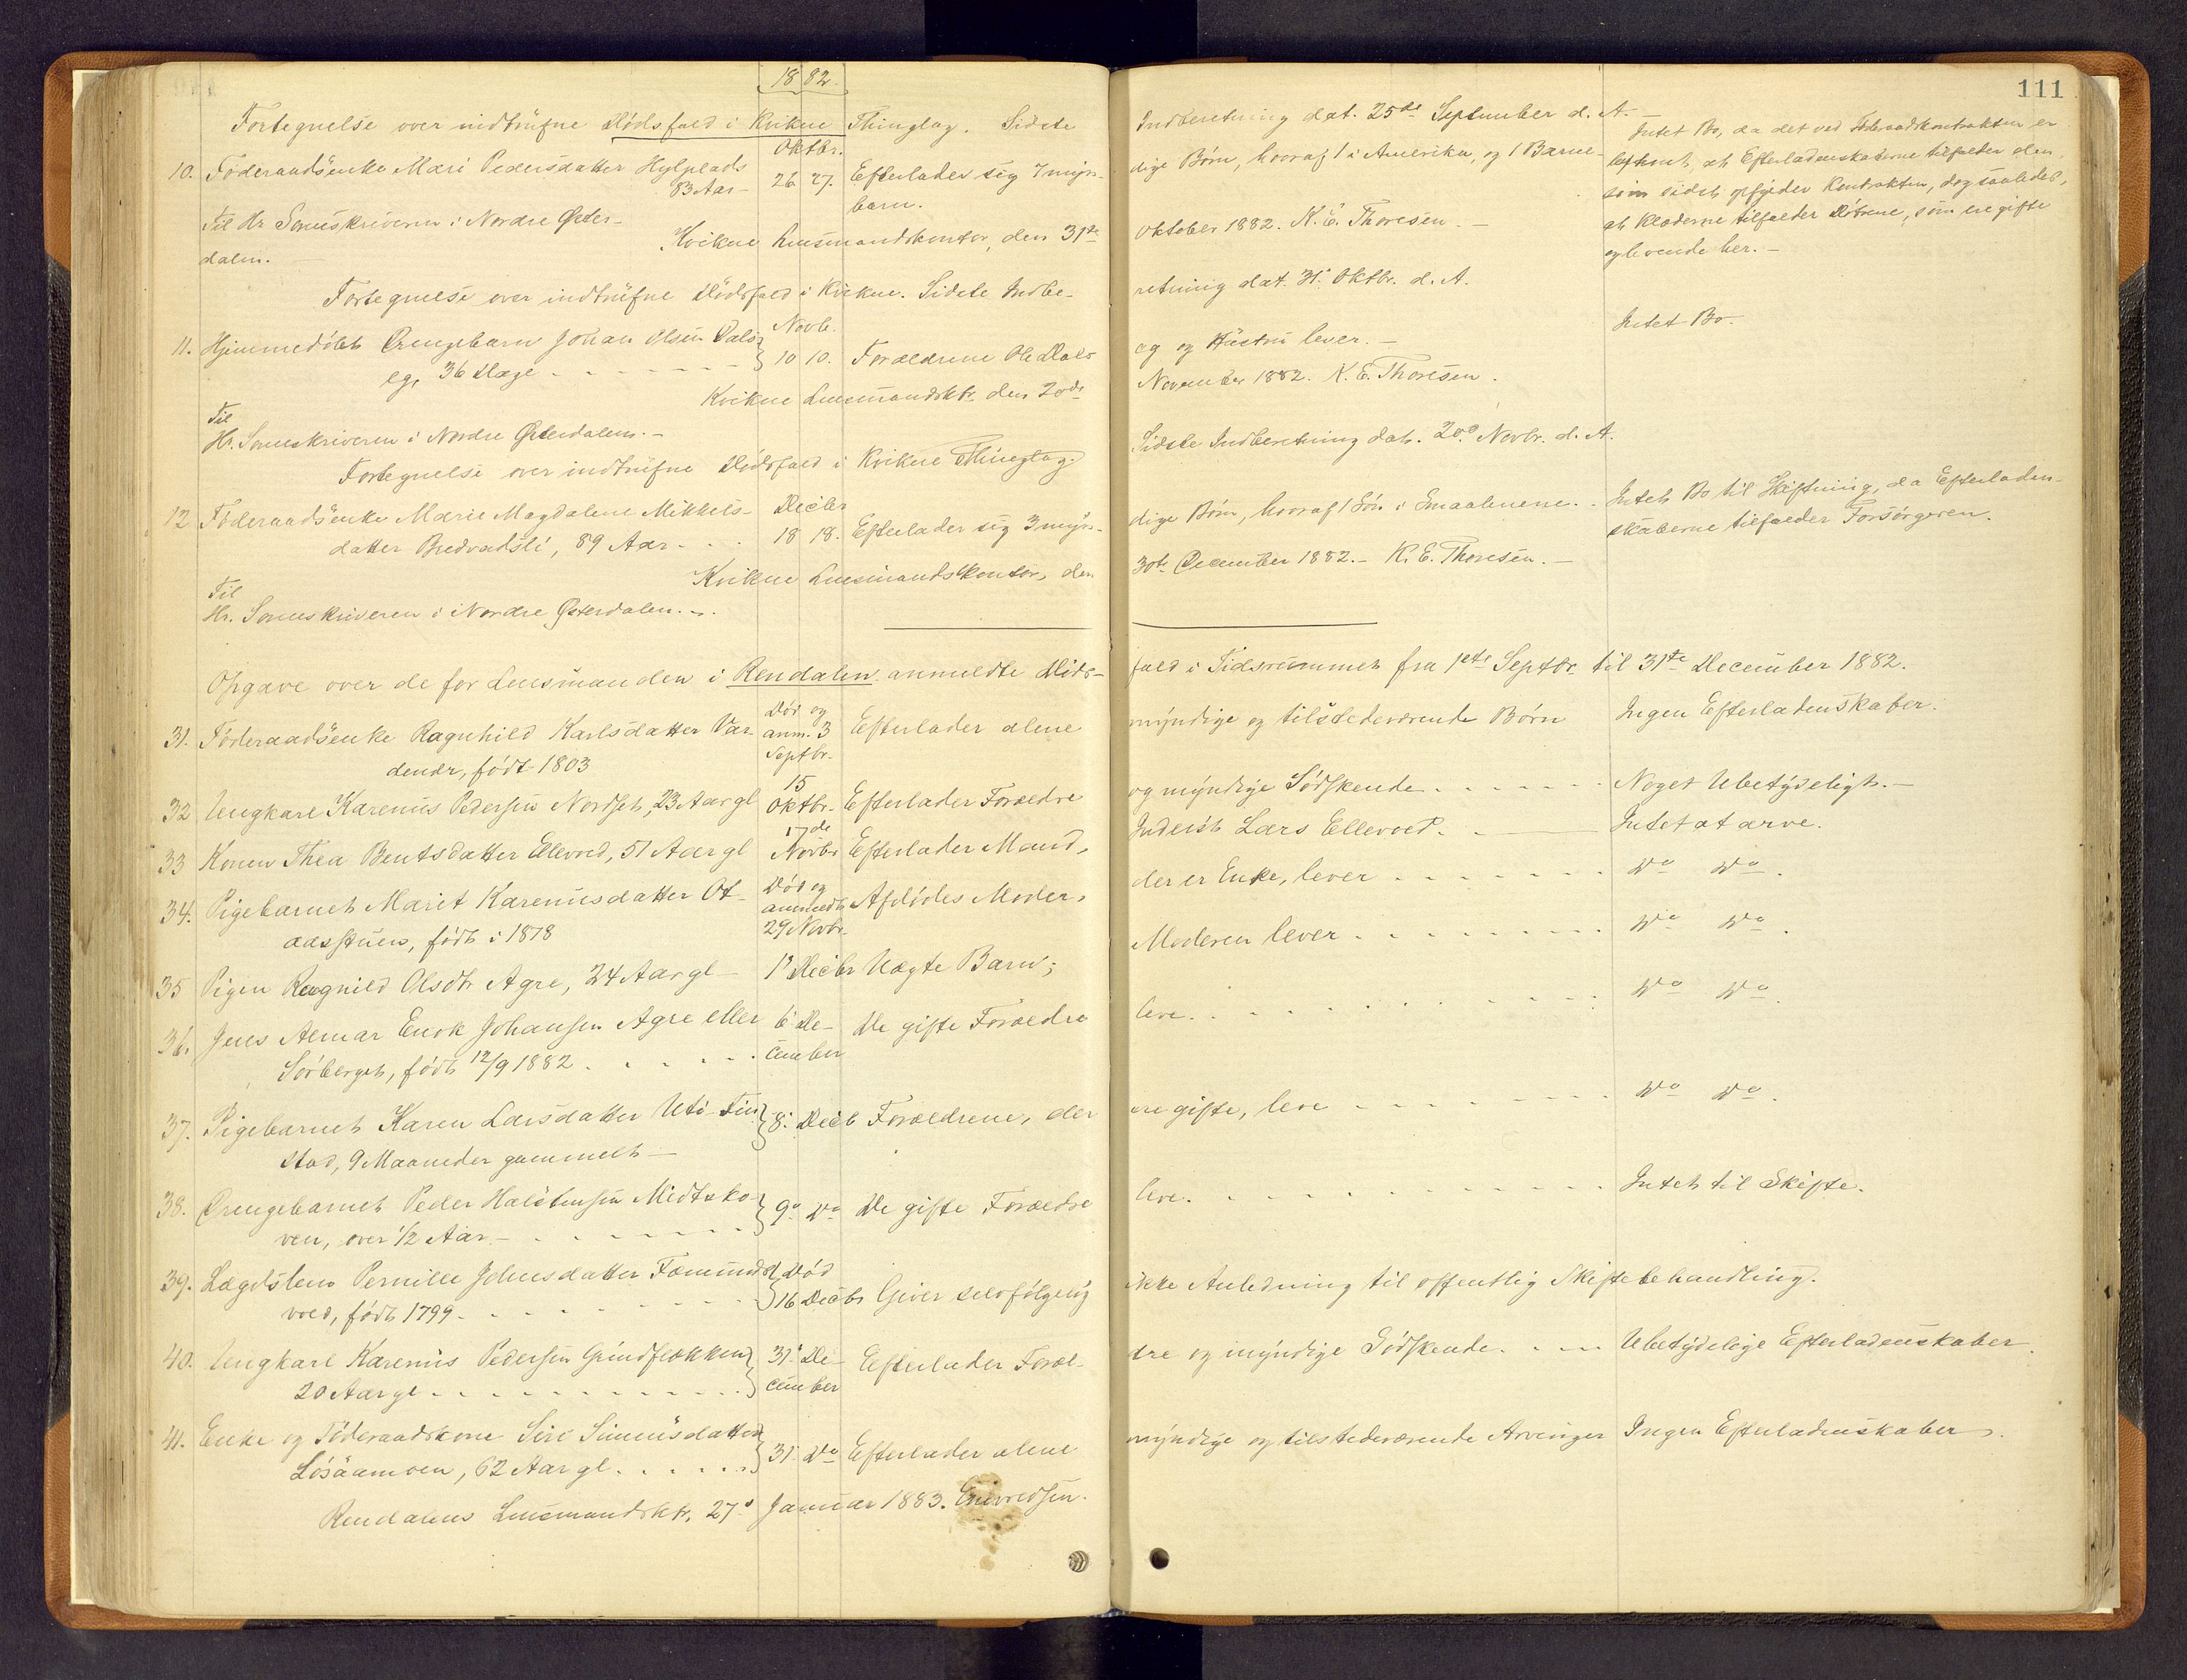 1882.
111
Fortegnelse over indtrufne Dødsfald i Kvikne Thinglag. Sidste Indberetning dat. 25de September d. A. —
10. Føderaadsenke Mari Pedersdatter Hylplads
83 Aar —
Oktbr.
26 27.
Efterlader sig 7 myn-
dige Børn, hvoraf 1 i Amerika, og 1 Barne-
barn.
Intet Bo, da det ved Føderaadkontrakten er
bestemt, at Efterladenskaberne tilfalder den,
som sidst opfylder Kontrakten, dog saaledes,
at Klæderne tilfalder Døtrene, som ere gifte
og levende her. —
Til Hr Sorenskriveren i Nordre Øster-
dalen. —
Kvikne Lensmandskontor, den 31te Oktober 1882. K. E. Thoresen. —
Fortegnelse over indtrufne Dødsfald i Kvikne. Sidste Indbe-
retning dat. 31. Oktbr. d. A.
11. Hjemmedøbt Drengebarn Johan Olsen Dals-
eg, 36 Dage
Novb.
10 10.
Forældrene Ole Dals-
eg og Hustru lever. —
Intet Bo.
Kvikne Lensmandsktr. den 20de November 1882. K. E. Thoresen.
Til
Hr. Sorenskriveren i Nordre Østerdalen. —
Fortegnelse over indtrufne Dødsfald i Kvikne Thinglag.
Sidste Indberetning dat. 20de Novbr. d. A.
12 Føderaadsenke Marie Magdalene Mikkels-
datter Bredvadsli, 89 Aar
Decbr
18 18.
Efterlader sig 3 myn-
dige Børn, hvoraf 1 Søn i Smaalenene.
Intet Bo til Skiftning, da Efterladen-
skaberne tilfalder Forsørgeren.
Kvikne Lensmandskontor, den 30te December 1882. — K. E. Thoresen. —
Til
Hr. Sorenskriveren i Nordre Østerdalen. —
Opgave over de for Lensmanden i Rendalen anmeldte Døds-
fald i Tidsrummet fra 1ste Septbr. til 31te December 1882.
31. Føderaadsenke Ragnhild Karlsdatter Var-
denær, født 1803
Død og
anm. 3
Septbr.
Efterlader alene
myndige og tilstedeværende Børn
Ingen Efterladenskaber.
32 Ungkarl Karenus Pedersen Nordset, 23 Aar gl
15
Oktbr.
Efterlader Forældre
og myndige Sødskende
Noget Ubetydeligt. —
33 Konen Thea Bentsdatter Ellevold, 51 Aar gl
17de
Novbr
Efterlader Mand,
Inderst Lars Ellevold.
Intet at arve.
34. Pigebarnet Marit Karenusdatter Ot-
aasstuen, født i 1878
Død og
anmeldt
29 Novbr.
Afdødes Moder,
der er Enke, lever
Do Do.
35 Pigen Ragnild Olsdtr Agre, 24 Aar gl —
1' Decbr
Uægte Barn;
Moderen lever
Do Do.
36. Jens Aemar Enok Johansen Agre eller
Sørberget, født 12/9 1882
6' De-
cember
De gifte Forældre
leve.
Do Do.
37. Pigebarnet Karen Larsdatter Uti-Fin-
stad, 9 Maaneder gammelt —
8. Decb
Forældrene, der
ere gifte, leve
Do Do.
38. Drengebarnet Peder Halstensen Midtsko-
ven, over 1/2 Aar
9de Do
De gifte Forældre
leve.
Intet til Skifte.
39. Lægdslem Pernille Johnsdatter Fæmunds-
vold, født 1799
Død
16 Decbr
Giver selvfølgelig
ikke Anledning til offentlig Skiftebehandling.
40. Ungkarl Karenus Pedersen Grindflækken
20 Aar gl
31' De-
cember
Efterlader Foræl-
dre og myndige Sødskende.
Ubetydelige Efterladenskaber.
41. Enke og Føderaadskone Siri Simensdatter
Løsaamoen, 62 Aar gl.
31' Do
Efterlader alene
myndige og tilstedeværende Arvinger
Ingen Efterladenskaber.
Rendalens Lensmandsktr, 27' Januar 1883. Enevoldsen.